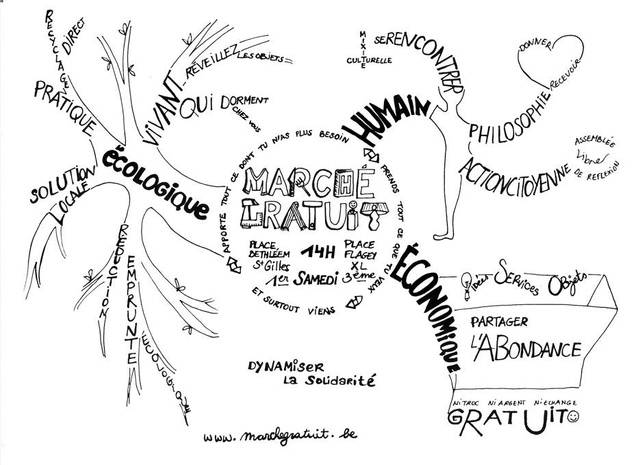 RECYCLAGE
DIRECT
PRATIQUE
VIVANT
RÉVEILLEZ LES OBJETS
QUI DORMENT
CHEZ VOUS
écologique
SOLUTION
LOCALE
RÉDUCTION
EMPRUNTE
ÉCOLOGIQUE
MIXITÉ
CULTURELLE
SE RENCONTRER
HUMAIN
DONNER
RECEVOIR
PHILOSOPHIE
ACTION CITOYENNE
ASSEMBLÉE
Libre
DE REFLEXION
APPORTE TOUT CE DONT TU N'AS PLUS BESOIN
PRENDS TOUT CE QUE TU VEUX
ET SURTOUT VIENS
MARCHÉ
GRATUIT
PLACE
BETHLEEM
St Gilles
1er
14H
SAMEDI
PLACE
FLAGEY
XL
3ème
ÉCONOMIQUE
Idées Services Objets
PARTAGER
L'ABONDANCE
NI TROC NI ARGENT NI ECHANGE
GRATUIT
DYNAMISER
LA SOLIDARITÉ
www.marchegratuit.be